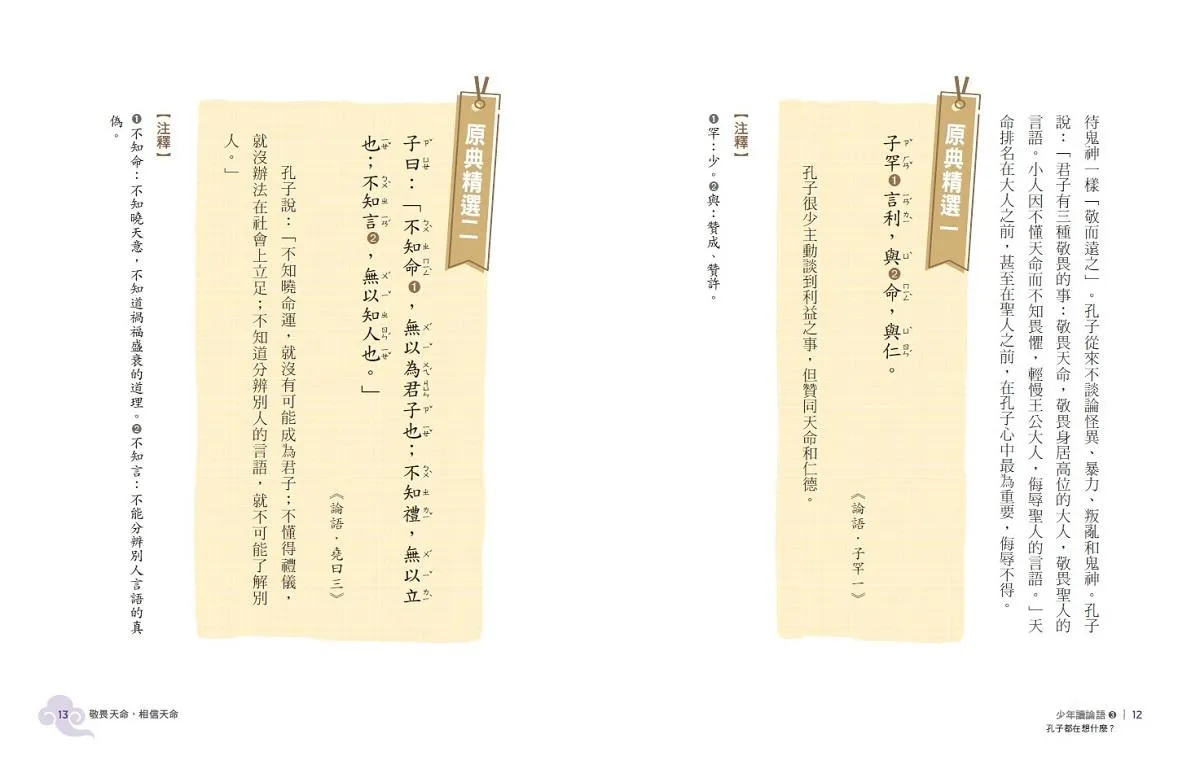 待鬼神一樣「敬而遠之」。孔子從來不談論怪異、暴力、叛亂和鬼神。孔子
說：「君子有三種敬畏的事：敬畏天命，敬畏身居高位的大人，敬畏聖人的
言語。小人因不懂天命而不知畏懼，輕慢王公大人，侮辱聖人的言語。」天
命排名在大人之前，甚至在聖人之前，在孔子心中最為重要，侮辱不得。
原典精選一
子罕❶言利，與❷命，與仁。
ㄗˇ ㄏㄢˇ ㄧㄢˊ ㄌㄧˋ ㄩˋ ㄇㄧㄥˋ ㄩˋ ㄖㄣˊ
《論語·子罕一》
孔子很少主動談到利益之事，但贊同天命和仁德。
【注釋】
❶罕：少。❷與：贊成、贊許。
少年讀論語❸｜12
孔子都在想什麼？
原典精選二
子曰：「不知命❶，無以為君子也；不知禮，無以立
ㄗˇ ㄩㄝ ㄅㄨˋ ㄓ ㄇㄧㄥˋ ㄨˊ ㄧˇ ㄨㄟˊ ㄐㄩㄣ ㄗˇ ㄧㄝˇ ㄅㄨˋ ㄓ ㄌㄧˇ ㄨˊ ㄧˇ ㄌㄧˋ
也；不知言❷，無以知人也。」
ㄧㄝˇ ㄅㄨˋ ㄓ ㄧㄢˊ ㄨˊ ㄧˇ ㄓ ㄖㄣˊ ㄧㄝˇ
《論語·堯曰三》
孔子說：「不知曉命運，就沒有可能成為君子；不懂得禮儀，
就沒辦法在社會上立足；不知道分辨別人的言語，就不可能了解別
人。」
【注釋】
❶不知命：不知曉天意，不知道禍福盛衰的道理。❷不知言：不能分辨別人言語的真
偽。
13 敬畏天命，相信天命